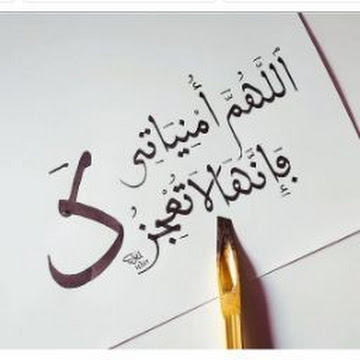 اَللَّهُمَّ أُمْنِيَاتِى
فَإِنَّهَا لَا تُعْجِزُكَ